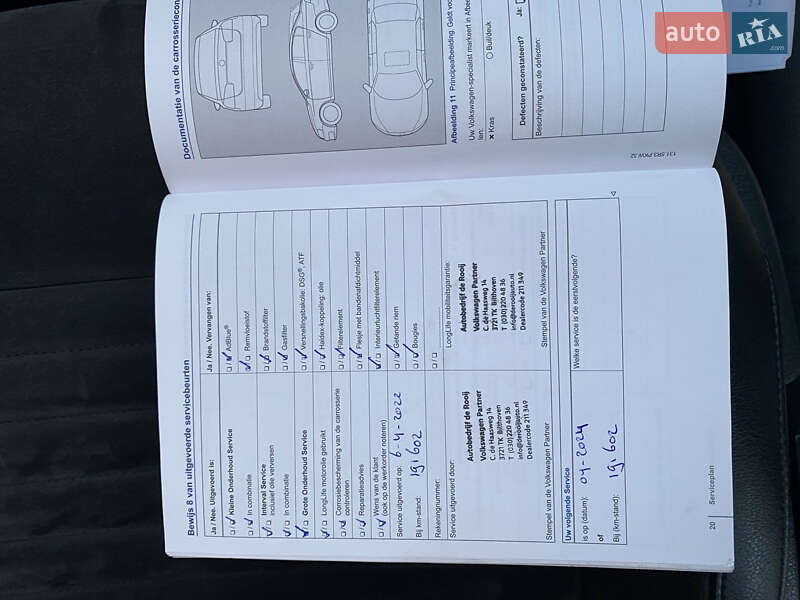 auto RIA .com
Documentatie van de carrosseriecon
Afbeelding 11 Principeafbeelding. Geldt voo
Uw Volkswagen-specialist markeert in Afbee
len:
✕ Kras
○ Buil/deuk
Ja:
Defecten geconstateerd?
Beschrijving van de defecten:
131.5R3.PKW.32
Bewijs 8 van uitgevoerde servicebeurten
Ja / Nee. Uitgevoerd is:
Kleine Onderhoud Service
In combinatie
Interval Service
inclusief olie verversen
In combinatie
Grote Onderhoud Service
LongLife motorolie gebruikt
Corrosiebescherming van de carrosserie
controleren
Reparatieadvies
Wens van de klant
(ook op de werkorder noteren)
Service uitgevoerd op: 6-4-2022
Bij km-stand: 191602
Rekeningnummer:
Service uitgevoerd door:
Autobedrijf de Rooij
Volkswagen Partner
C. de Haasweg 14
3721 TK Bilthoven
T (030) 220 48 36
info@derooijauto.nl
Dealercode 211 349
Stempel van de Volkswagen Partner
Ja / Nee. Vervangen van:
AdBlue®
Remvloeistof
Brandstoffilter
Gasfilter
Versnellingsbakolie: DSG®, ATF
Haldex-koppeling: olie
Filterelement
Flesje met bandenafdichtmiddel
Interieurluchtfilterelement
Getande riem
Bougies
LongLife mobiliteitsgarantie:
Autobedrijf de Rooij
Volkswagen Partner
C. de Haasweg 14
3721 TK Bilthoven
T (030) 220 48 36
info@derooijauto.nl
Dealercode 211 349
Stempel van de Volkswagen Partner
Uw volgende Service
is op (datum): 04-2024
of
Bij (km-stand): 191602
Welke service is de eerstvolgende?
20 Serviceplan